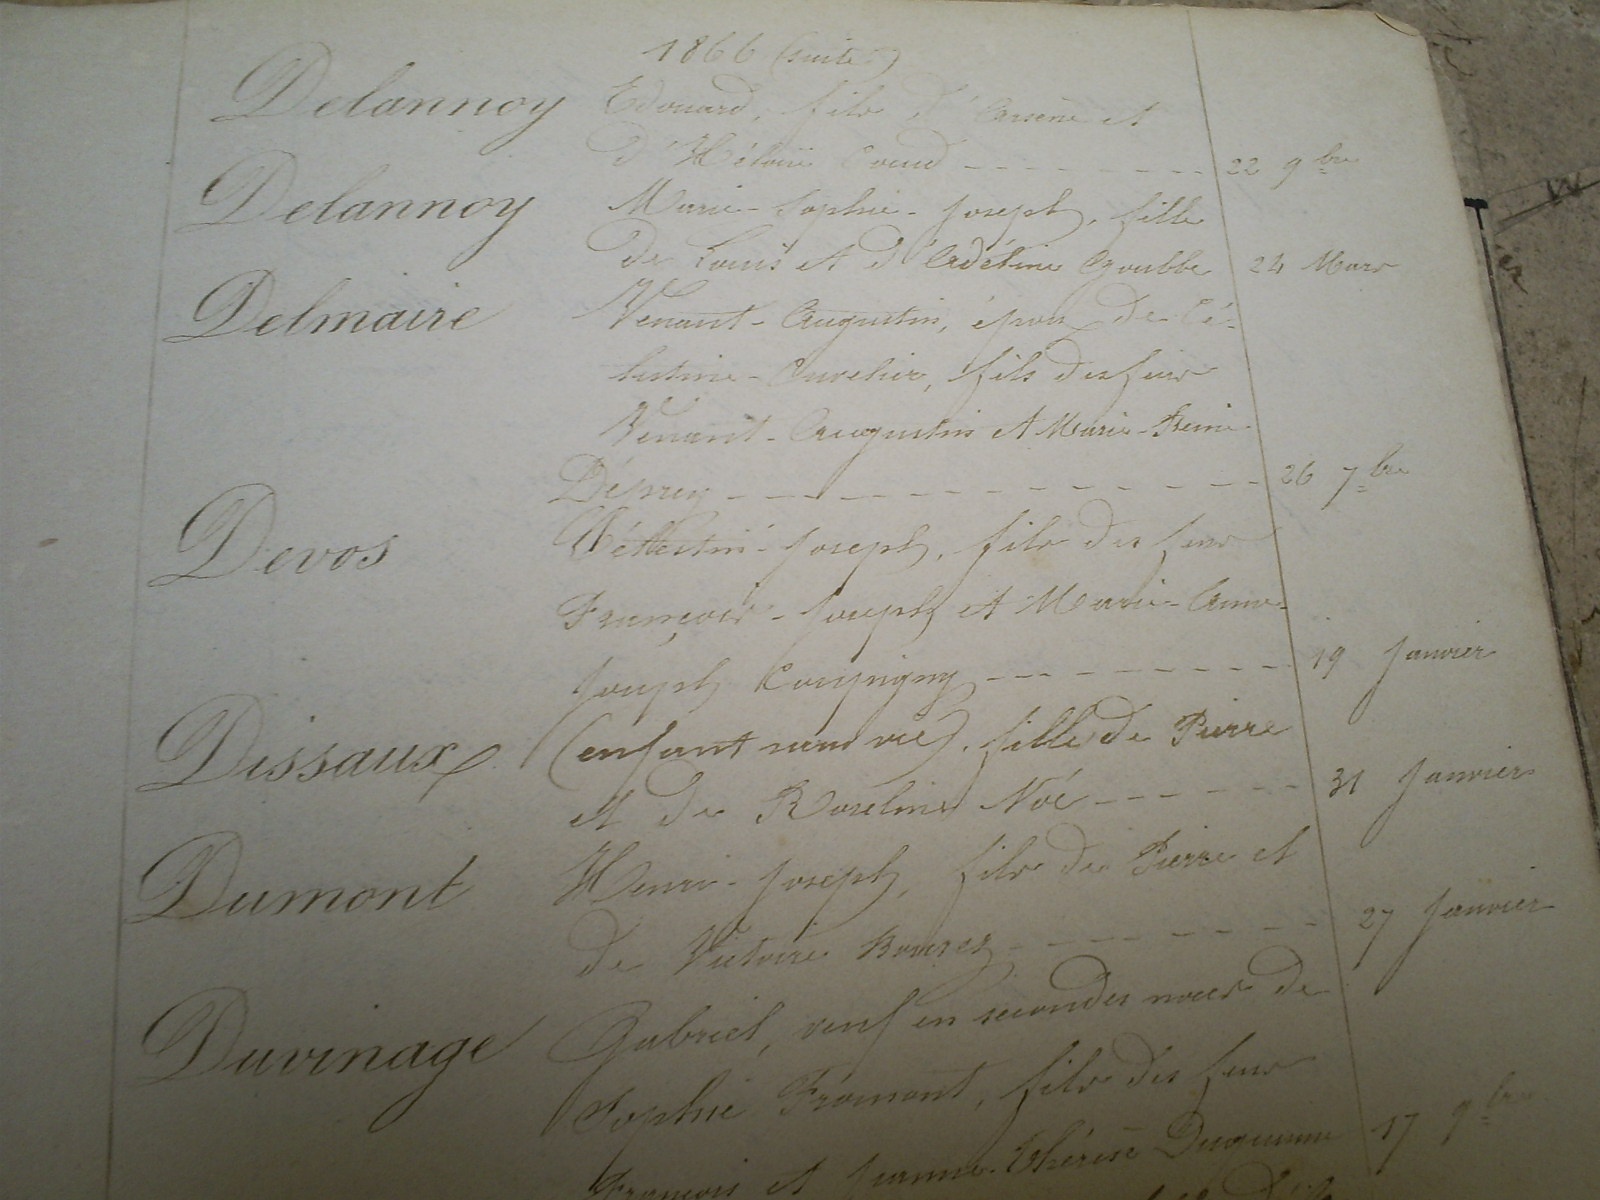 1866 (suite)
Delannoy Edouard, fils d'Arsène et
d'Héloïse 22 9bre
Delannoy Marie-Sophie-Joseph, fille
de Louis et d'Adéline Goubbe 24 Mars
Delmaire Venant-Augustin, époux de Cé-
lestine Cuvelier, fils des feux
Venant-Augustin et Marie-Reine
Déprey 26 7bre
Devos Célestin-Joseph, fils des feux
François-Joseph et Marie-Anne-
Joseph Coupigny 19 Janvier
Dissaux (enfant sans vie), fille de Pierre
et de Roseline Noé 31 Janvier
Dumont Henri-Joseph, fils de Pierre et
de Victoire 27 Janvier
Duvinage Gabriel, veuf en secondes noces de
Sophie Fromont, fils des feux
François et Jeanne-Thérèse 17 9bre